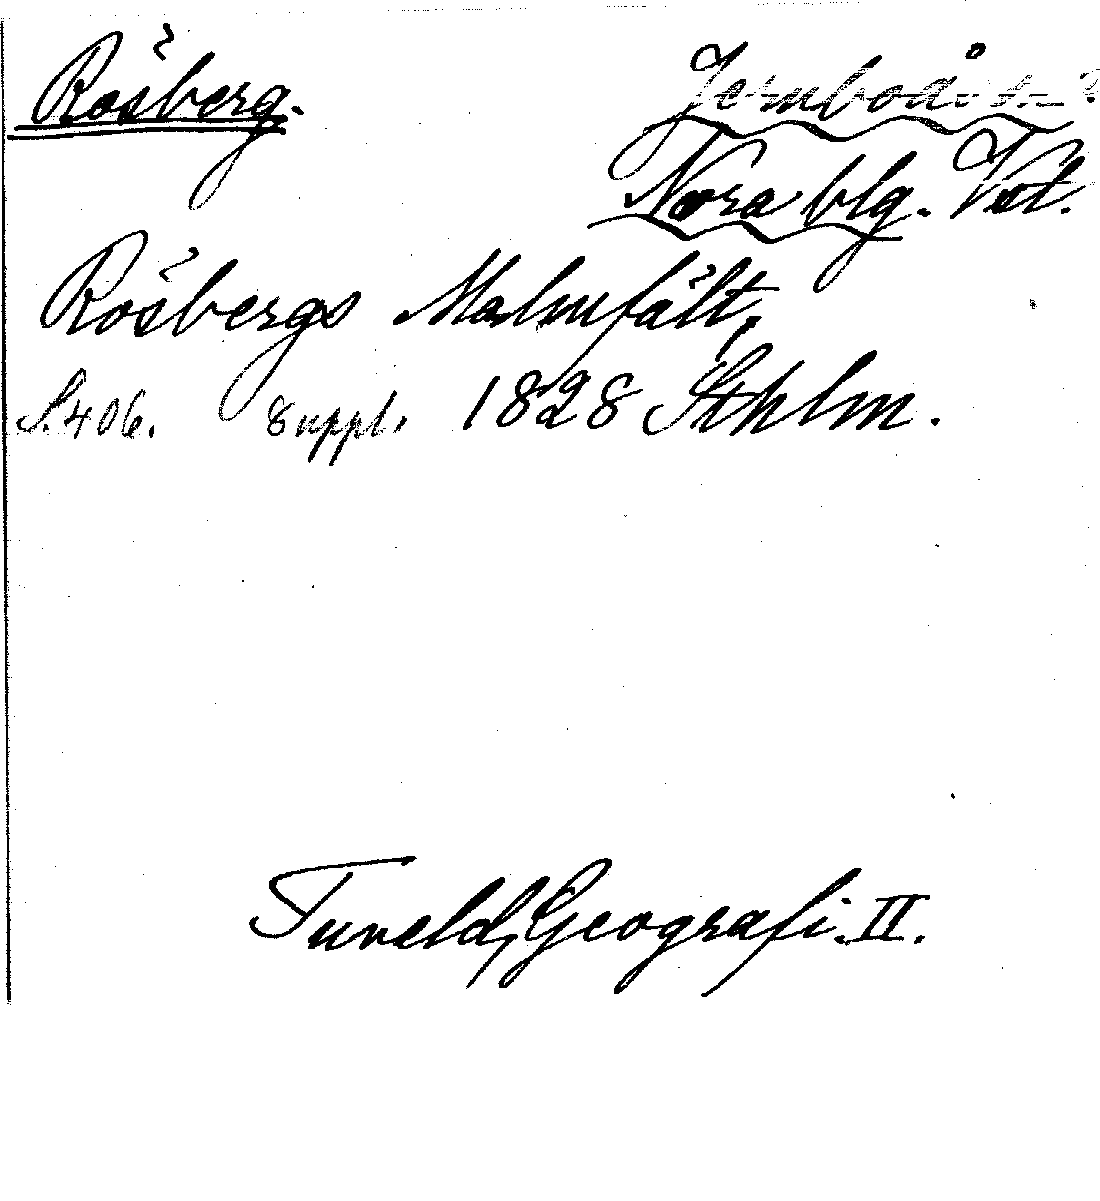 Rösberg.
Jernboås s. ?
Nora blg. Vstl.
Rösbergs Malmfält,
S. 406. Suppl. 1828 Sthlm.
Tuneld, Geografi. II.